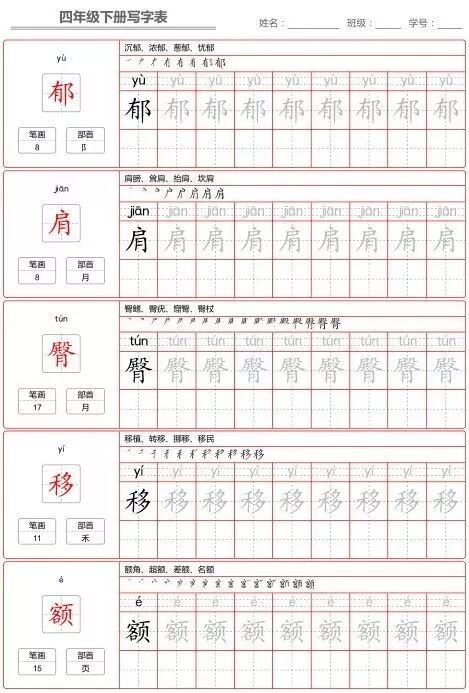 四年级下册写字表 姓名： 班级： 学号：
yù
郁
笔画 部首
8 阝
沉郁、浓郁、葱郁、忧郁
yù yù yù yù yù yù yù yù
郁 郁 郁 郁 郁 郁 郁 郁
jiān
肩
笔画 部首
8 月
肩膀、耸肩、抬肩、坎肩
jiān jiān jiān jiān jiān jiān jiān jiān
肩 肩 肩 肩 肩 肩 肩 肩
tún
臀
笔画 部首
17 月
臀鳍、臀疣、窟臀、臀杖
tún tún tún tún tún tún tún tún
臀 臀 臀 臀 臀 臀 臀 臀
yí
移
笔画 部首
11 禾
移植、转移、挪移、移民
yí yí yí yí yí yí yí yí
移 移 移 移 移 移 移 移
é
额
笔画 部首
15 页
额角、超额、差额、名额
é é é é é é é é
额 额 额 额 额 额 额 额